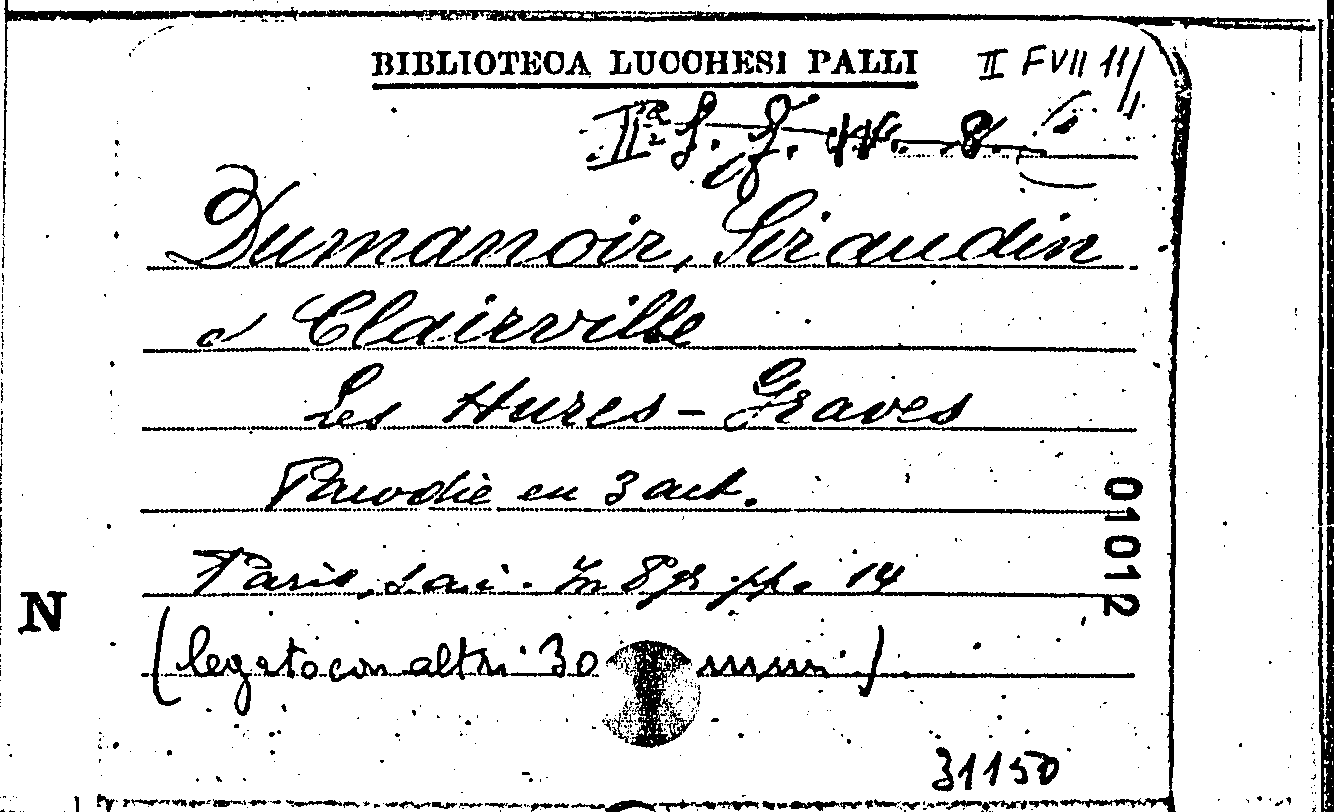 BIBLIOTECA LUCCHESI PALLI
II F VII 11/1
Dumanoir, Siraudin
e Clairville
Les Hures-Graves
Parodie en 3 act.
Paris, s. a. i. In 8 gr. pp. 14
01012
N
(legato con altri 30 )
31150